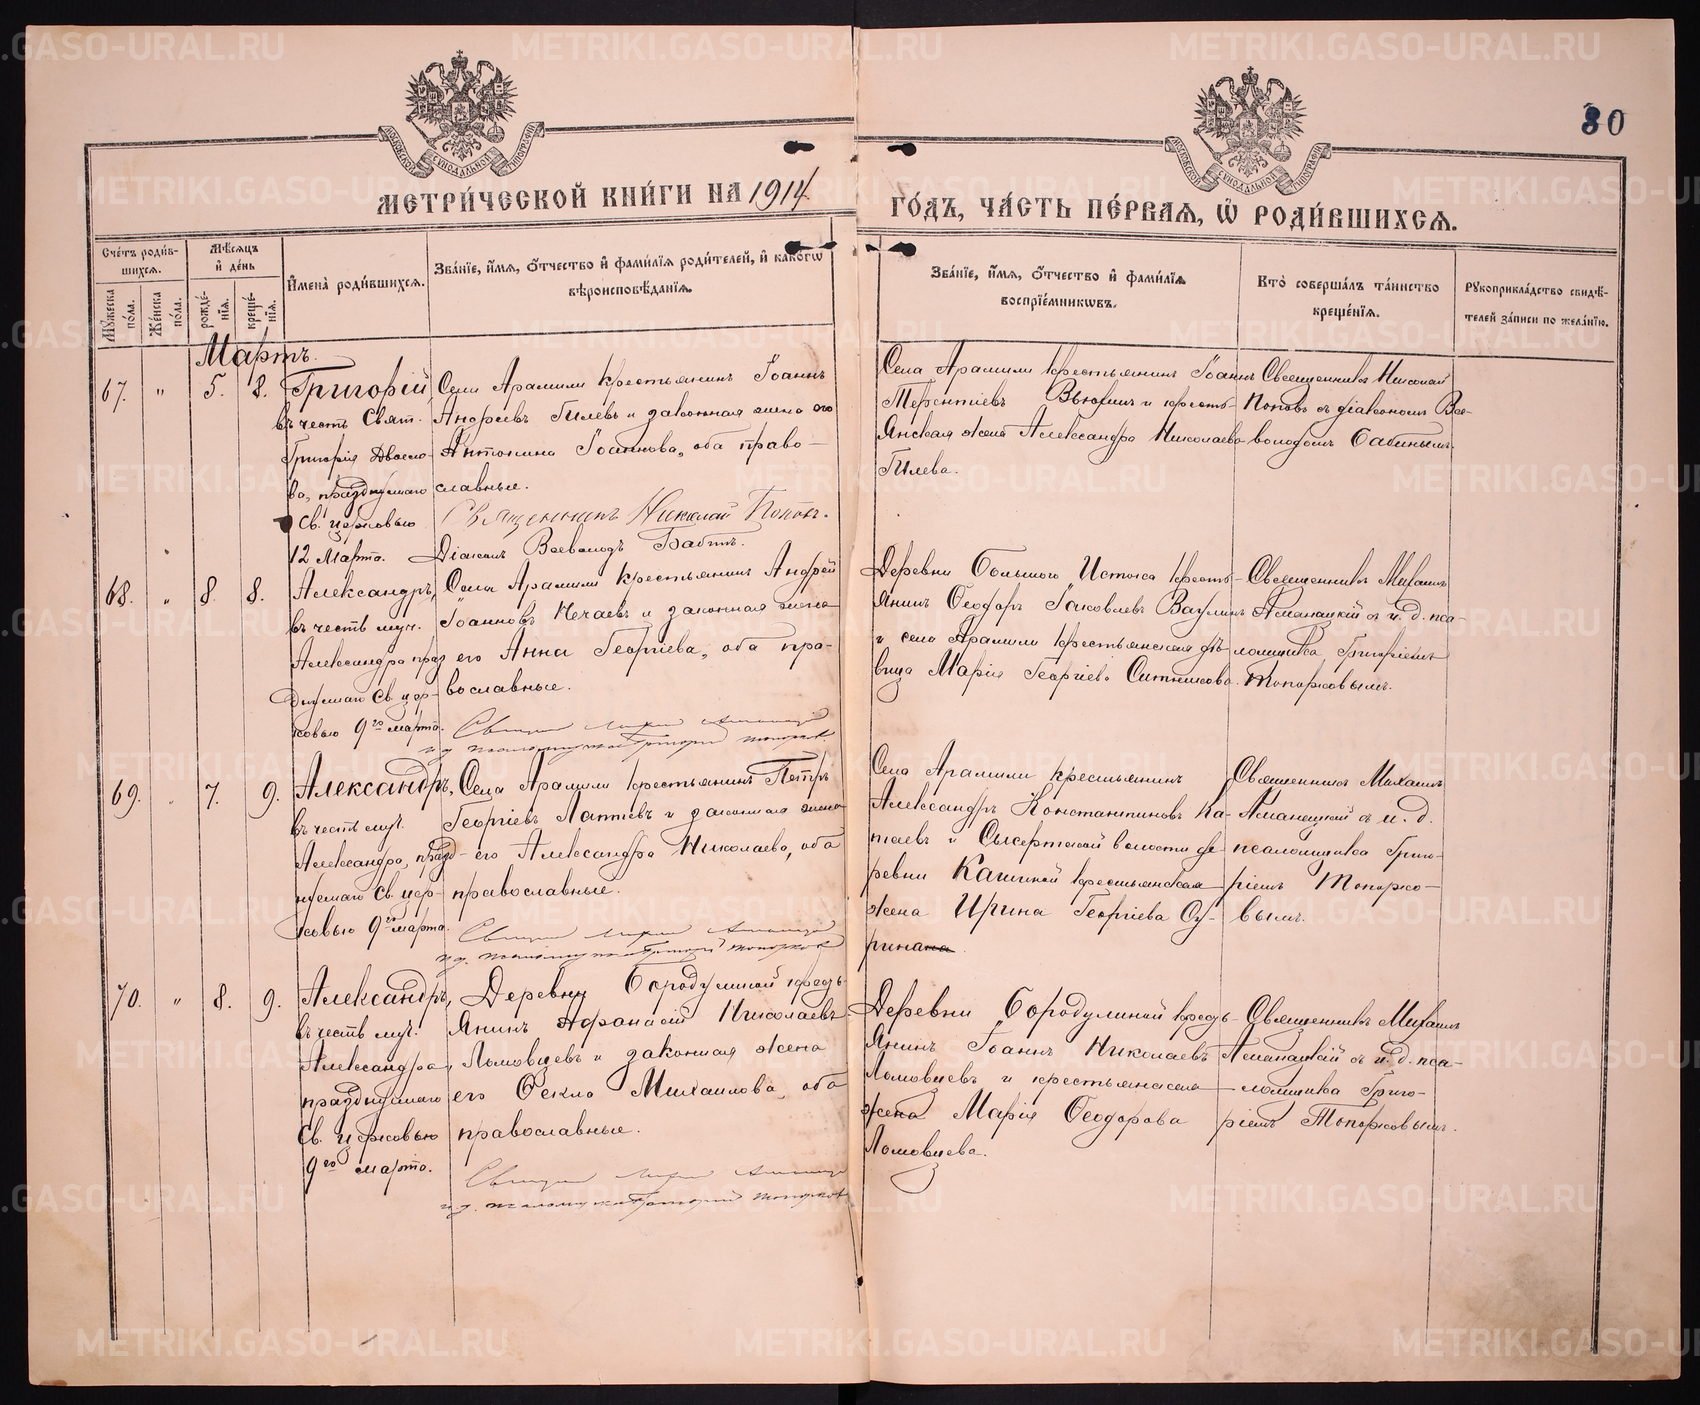 80
МОСКОВСКОЙ СѴНОДАЛЬНОЙ ТИПОГРАФІИ
МОСКОВСКОЙ СѴНОДАЛЬНОЙ ТИПОГРАФІИ
МЕТРИ́ЧЕСКОЙ КНИ́ГИ НА 1914
ГО́ДЪ, ЧА́СТЬ ПЕ́РВАЯ, Ѡ РОДИ́ВШИХСЯ.
Сче́тъ роди́в-
шихся.
Мѣ́сяцъ
и де́нь
Му́жеска
по́ла.
Же́нска
по́ла.
рожде́-
нїя.
креще́-
нїя.
Имена̀ роди́вшихся.
Зва́нїе, и́мя, о́тчество и фами́лїя роди́телей, и како́гѡ
вѣроисповѣ́данїя.
Зва́нїе, и́мя, о́тчество и фами́лїя
воспрїе́мниковъ.
Кто̀ соверша́лъ та́инство
креще́нїя.
Рукоприкла́дство свидѣ́-
телей за́писи по жела́нїю.
Мартъ.
67. " 5. 8.
Григорій,
въ честь Свят.
Григорія Двоесло-
ва, празднуемаго
Св. церковью
12 Марта.
Села Арамили крестьянинъ Іоаннъ
Андреевъ Гилевъ и законная жена его
Антонина Іоаннова, оба право-
славные.
Священникъ Николай Поповъ.
Діаконъ Всеволодъ Бабинъ.
Села Арамили крестьянинъ Іоаннъ
Терентіевъ Вьюхинъ и кресть-
янская жена Александра Николаева
Гилева.
Священникъ Николай
Поповъ съ діакономъ Все-
володомъ Бабинымъ.
68. " 8. 8.
Александръ,
въ честь муч.
Александра праз
днуемаго Св. цер-
ковью 9го марта.
Села Арамили крестьянинъ Андрей
Іоанновъ Нечаевъ и законная жена
его Анна Георгіева, оба пра-
вославные.
Деревни Большого Истока кресть-
янинъ Ѳеодоръ Іаковлевъ Ваулинъ
и села Арамили крестьянская дѣ-
вица Марія Георгіева Ситникова.
Священникъ Михаилъ
Асманецкій съ и. д. пса-
ломщика Григоріемъ
Топорковымъ.
69. " 7. 9.
Александръ,
въ честь муч.
Александра, празд-
нуемаго Св. цер-
ковью 9го марта.
Села Арамили крестьянинъ Петръ
Георгіевъ Лаптевъ и законная жена
его Александра Николаева, оба
православные.
Села Арамили крестьянинъ
Александръ Константиновъ Ка-
таевъ и Сысертской волости де-
ревни Кашиной крестьянская
жена Ирина Георгіева Су-
рина
Священникъ Михаилъ
Асманецкій съ и. д.
псаломщика Григо-
ріемъ Топорко-
вымъ.
70. " 8. 9.
Александръ,
въ честь муч.
Александра,
празднуемаго
Св. церковью
9го марта.
Деревни Бородулиной кресть
янинъ Афанасій Николаевъ
Ломовцевъ и законная жена
его Ѳекла Михаилова, оба
православные.
Деревни Бородулиной кресть-
янинъ Іоаннъ Николаевъ
Ломовцевъ и крестьянская
жена Марія Ѳеодорова
Ломовцева.
Священникъ Михаилъ
Асманецкій съ и. д. пса-
ломщика Григо-
ріемъ Топорковымъ.
METRIKI.GASO-URAL.RU